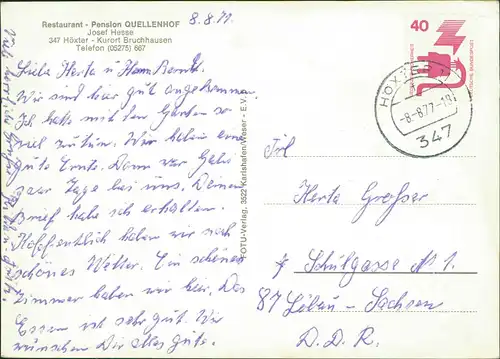 Restaurant - Pension QUELLENHOF
Josef Hesse
347 Höxter - Kurort Bruchhausen
Telefon (05275) 667
8.8.77
Liebe Herta u
Wir sind hier gut angekommen
Ich hatte mit dem Garten so
viel zutun. Wir haben eine
gute Ernte. Dann war
paar Tage bei uns. Deinen
Brief habe ich erhalten.
Hoffentlich haben wir noch
schönes Wetter. Ein schönes
Zimmer haben wir hier. Das
Essen ist sehr gut. Wir
wünschen Dir alles gute.
Viele herzliche Grüße
FOTU-Verlag, 3522 Karlshafen/Weser - E.V.
40
DEUTSCHE BUNDESPOST
HÖXTER 1
-8-8.77-18
347
Frl
Herta Großer
Schulgasse N: 1.
87 Löbau - Sachsen
D.D.R.